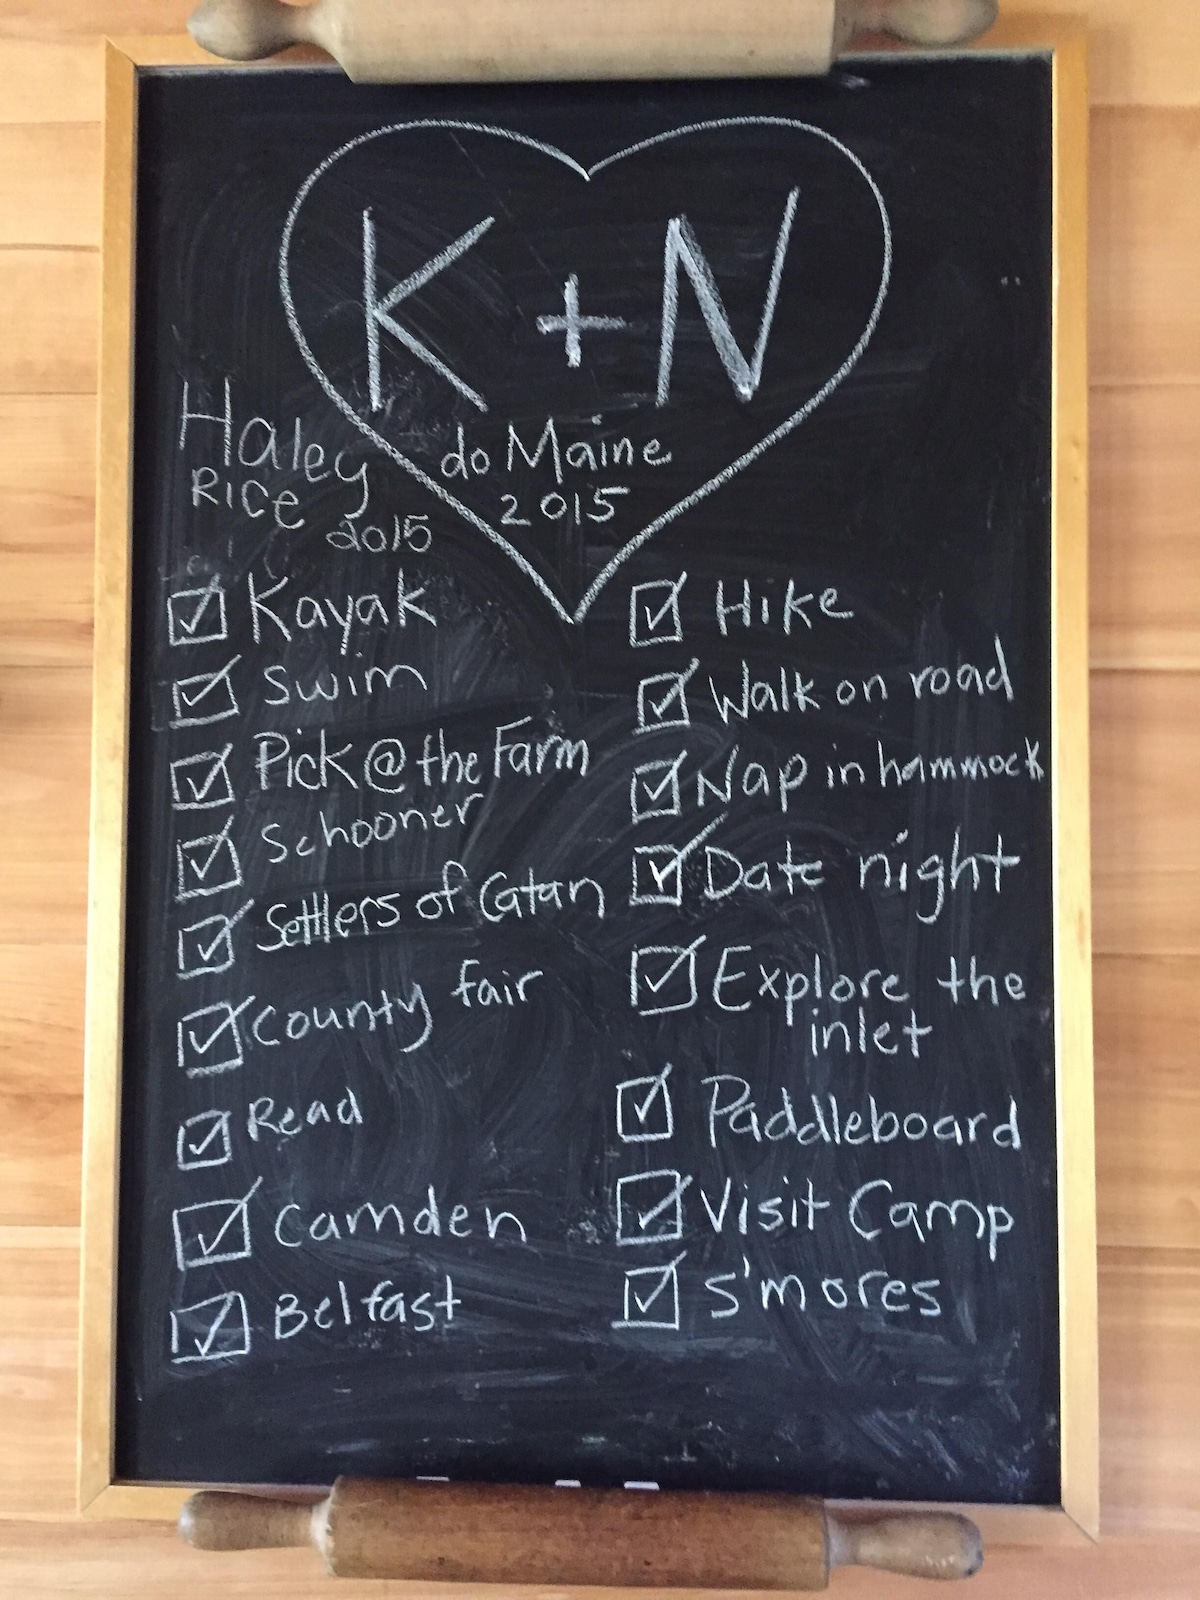 K + N
do Maine
2015
Haley
RICE
2015
Kayak
Swim
Pick @ the Farm
Schooner
Settlers of Catan
County fair
Read
Camden
Belfast
Hike
Walk on road
Nap in hammock
Date night
Explore the
inlet
Paddleboard
Visit Camp
S'mores